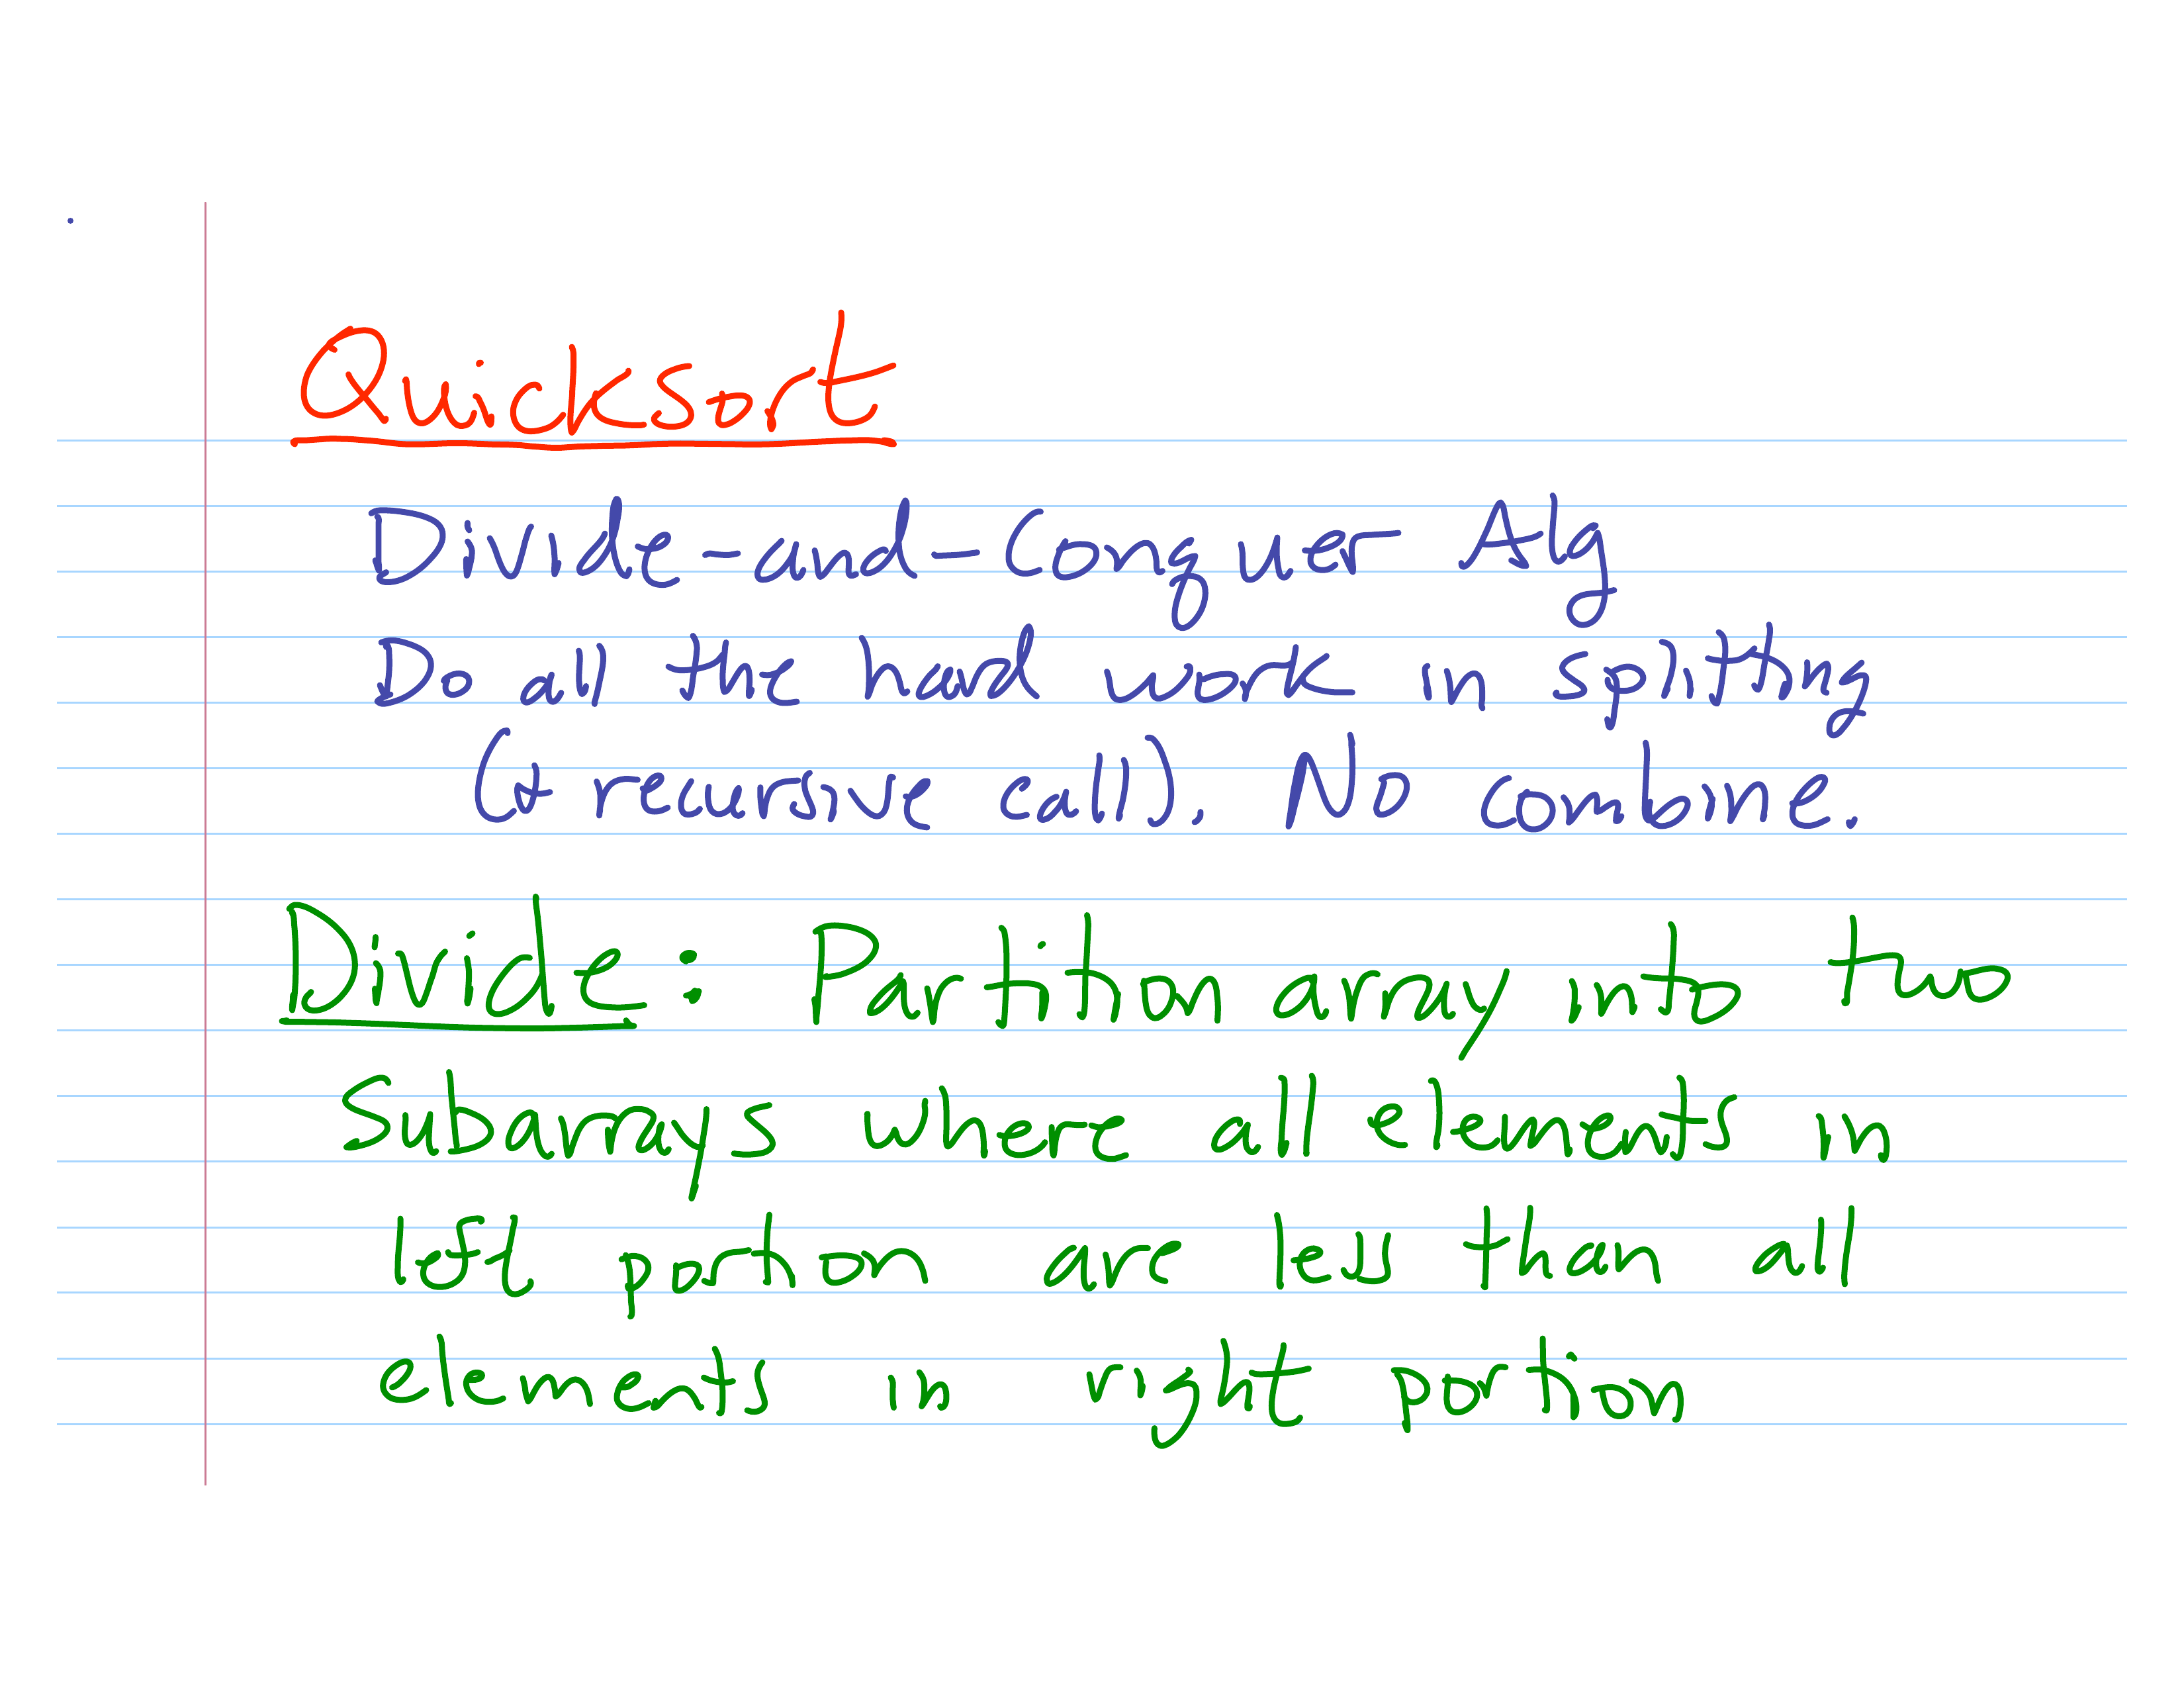 Quicksort
Divide-and-Conquer Alg
Do all the hard work in splitting
(& recursive call). No combine.
Divide: Partition array into two
Subarrays where all elements in
left portion are less than all
elements in right portion